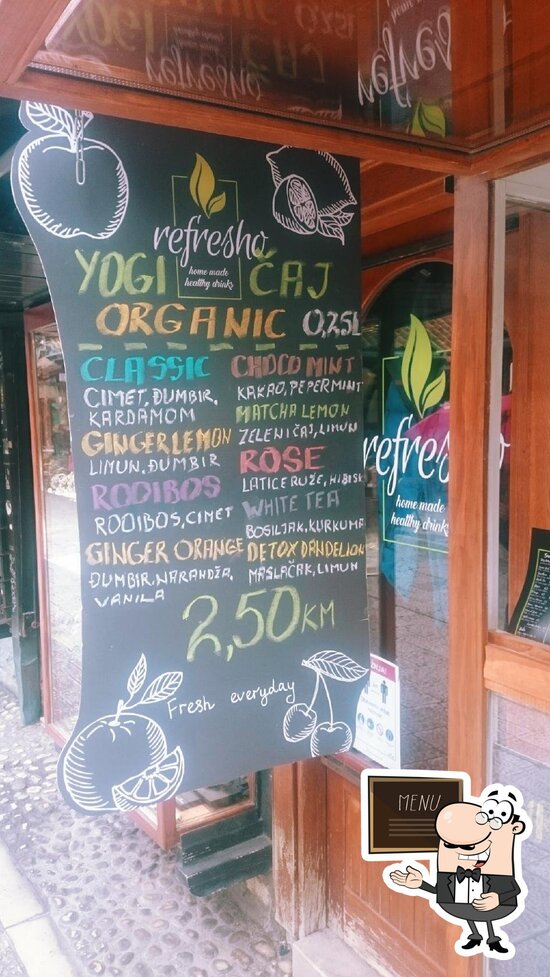 refresho
home made
healthy drinks
YOGI ČAJ
ORGANIC 0,25L
CLASSIC
CIMET, ĐUMBIR,
KARDAMOM
GINGER LEMON
LIMUN, ĐUMBIR
ROOIBOS
ROOIBOS, CIMET
GINGER ORANGE
ĐUMBIR, NARANDŽA,
VANILA
CHOCO MINT
KAKAO, PEPERMINT
MATCHA LEMON
ZELENI ČAJ, LIMUN
ROSE
LATICE RUŽE, HIBISK
WHITE TEA
BOSILJAK, KURKUMA
DETOX DANDELION
MASLAČAK, LIMUN
2,50 KM
Fresh everyday
refresho
home made
healthy drinks
MENU